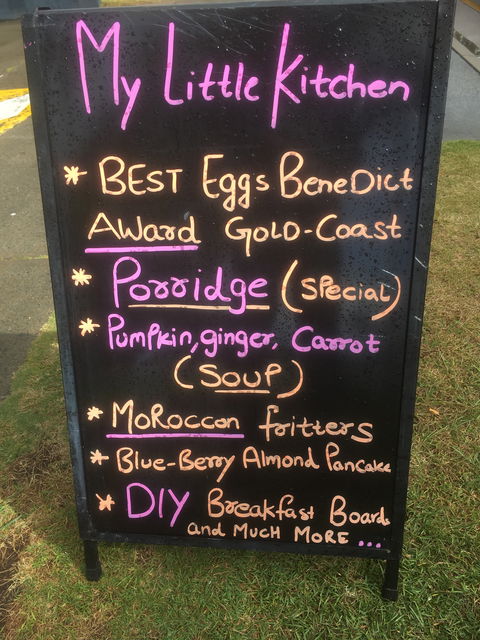 My Little Kitchen
* BEST Eggs BeneDict
AWard GOLD-Coast
* Porridge (special)
* Pumpkin, ginger, Carrot
(SOUP)
* MoRoccan fritters
* Blue-Berry Almond Pancake
* DIY Breakfast Boards
and MUCH MORE ...